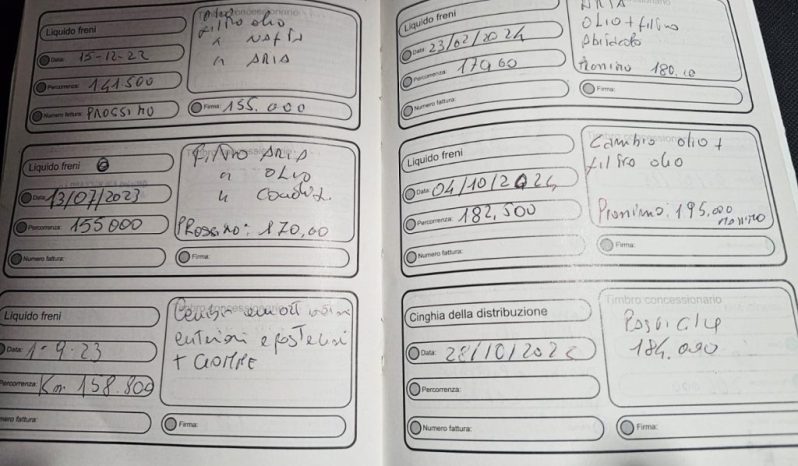 Liquido freni
Timbro concessionario
filtro olio
Data: 15-12-22
" NAFTA
" ARIA
Percorrenza: 141500
Numero fattura: PROSSIMO
Firma: 155.000
Liquido freni
Timbro concessionario
filtro ARIA
" OLIO
Data: 13/07/2023
Percorrenza: 155000
PRossimo: 170,00
Numero fattura:
Firma:
Liquido freni
Timbro concessionario
Data: 1-9-23
+ GOMME
Percorrenza: Km. 158.800
Numero fattura:
Firma:
Liquido freni
ARIA
OLIO + filtro
Data: 23/02/2024
Abitacolo
Percorrenza:
Numero fattura:
Firma:
Liquido freni
Cambio olio +
filtro olio
Data: 04/10/2024
Percorrenza: 182,500
Prossimo: 195,000
Numero fattura:
Firma:
Cinghia della distribuzione
Timbro concessionario
Data:
184.000
Percorrenza:
Numero fattura:
Firma: